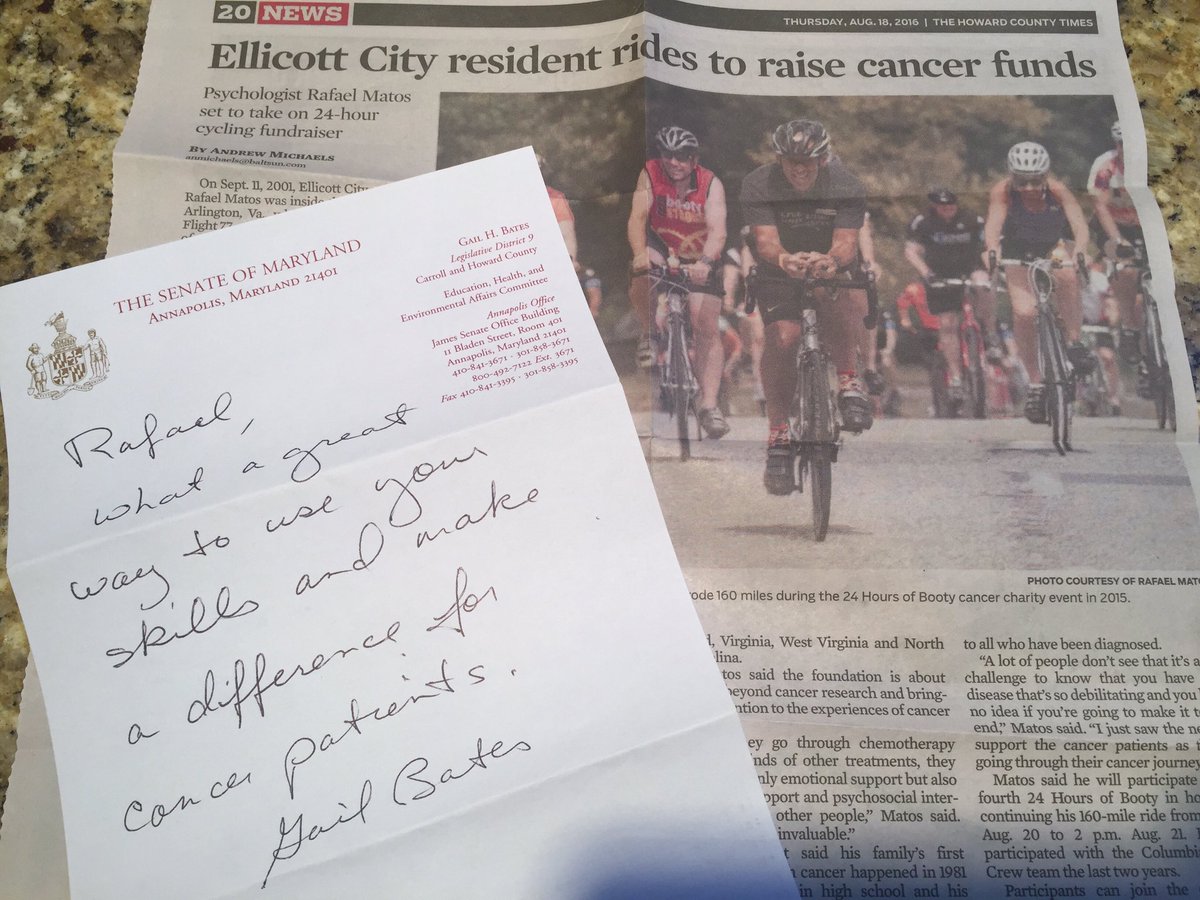 20 NEWS
THURSDAY, AUG. 18, 2016 | THE HOWARD COUNTY TIMES
Ellicott City resident rides to raise cancer funds
Psychologist Rafael Matos
set to take on 24-hour
cycling fundraiser
BY ANDREW MICHAELS
anmichaels@baltsun.com
On Sept. 11, 2001, Ellicott City
Rafael Matos was inside
Arlington, Va.,
Flight 77
THE SENATE OF MARYLAND
ANNAPOLIS, MARYLAND 21401
GAIL H. BATES
Legislative District 9
Carroll and Howard County
Education, Health, and
Environmental Affairs Committee
Annapolis Office
James Senate Office Building
11 Bladen Street, Room 401
Annapolis, Maryland 21401
410-841-3671 · 301-858-3671
800-492-7122 Ext. 3671
Fax 410-841-3395 · 301-858-3395
Rafael,
what a great
way to use your
skills and make
a difference for
cancer patients.
Gail Bates
PHOTO COURTESY OF RAFAEL MATO
rode 160 miles during the 24 Hours of Booty cancer charity event in 2015.
Virginia, West Virginia and North
lina.
tos said the foundation is about
beyond cancer research and bring-
ntion to the experiences of cancer
ey go through chemotherapy
nds of other treatments, they
nly emotional support but also
pport and psychosocial inter-
other people,” Matos said.
invaluable.”
said his family's first
cancer happened in 1981
in high school and his
to all who have been diagnosed.
“A lot of people don't see that it's a
challenge to know that you have
disease that's so debilitating and you
no idea if you're going to make it to
end,” Matos said. “I just saw the ne
support the cancer patients as t
going through their cancer journey
Matos said he will participate
fourth 24 Hours of Booty in ho
continuing his 160-mile ride from
Aug. 20 to 2 p.m. Aug. 21.
participated with the Columbi
Crew team the last two years.
Participants can join the